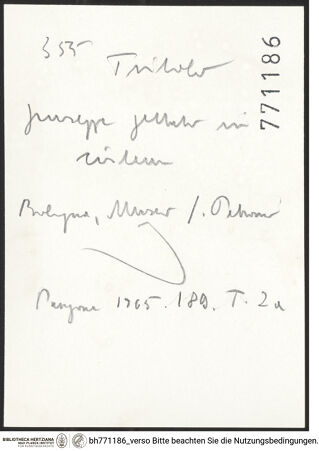 355
Tribolo
771186
Giuseppe gettato in
cisterna
Bologna, Museo S. Petronio
1965. 189. T. 2a
BIBLIOTHECA HERTZIANA
MAX-PLANCK-INSTITUT
FÜR KUNSTGESCHICHTE
bh771186_verso Bitte beachten Sie die Nutzungsbedingungen.